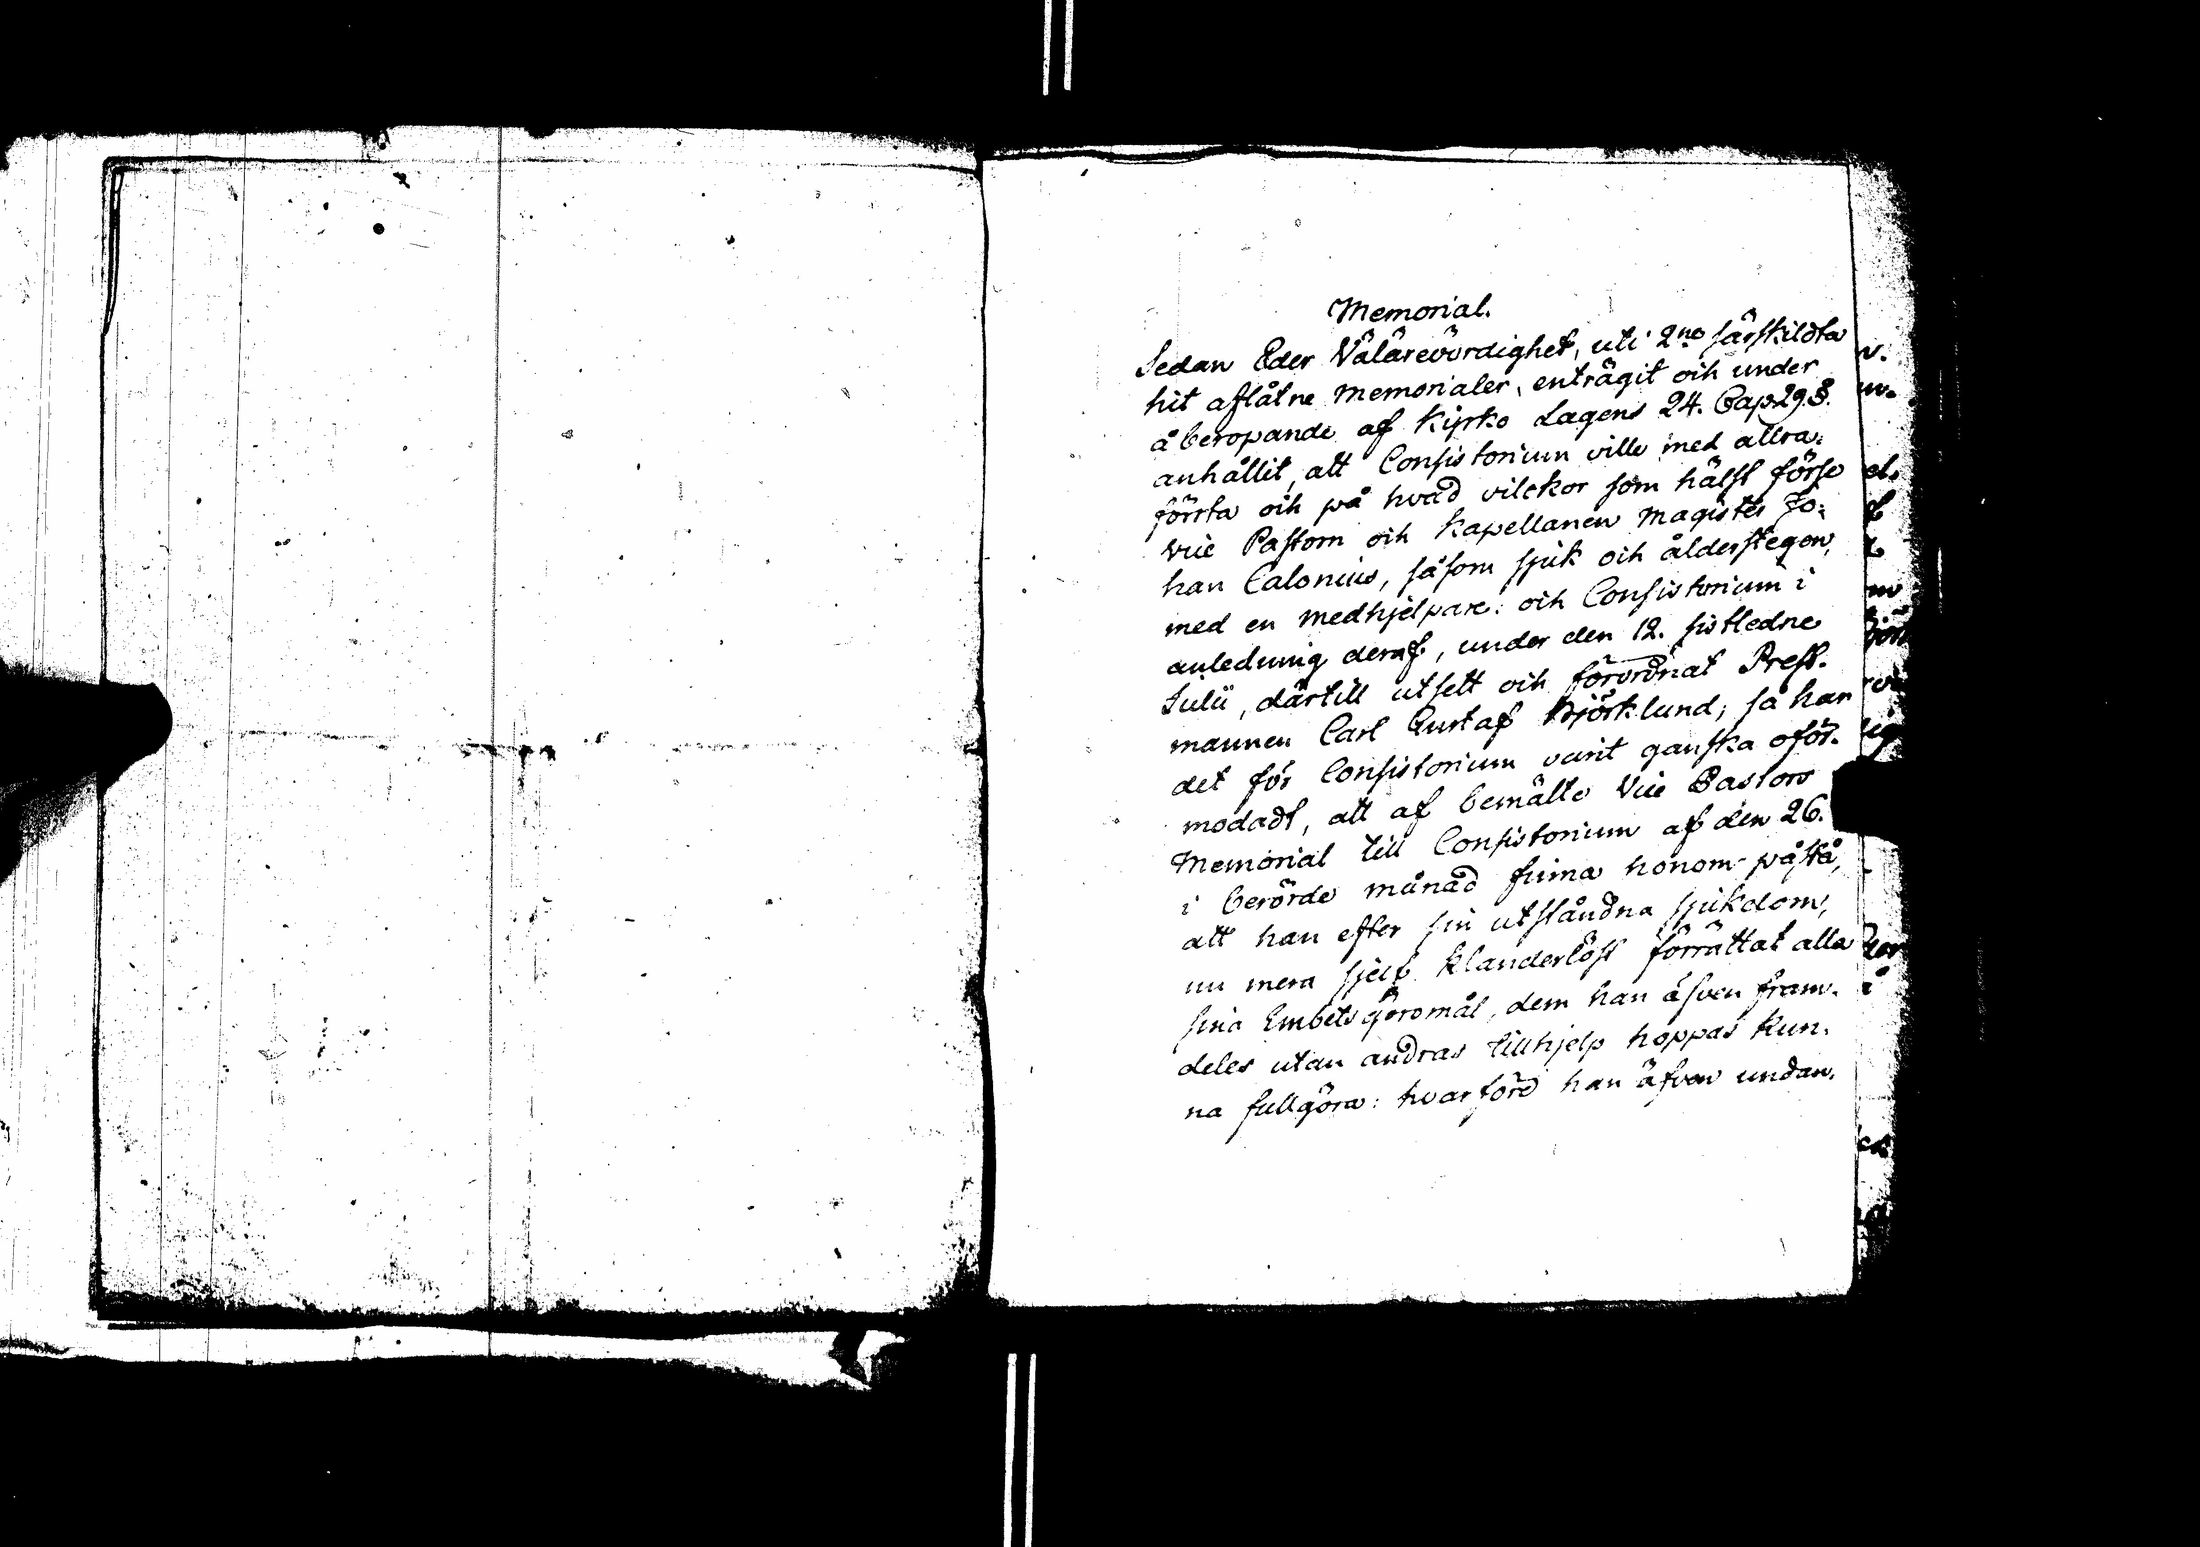 Memorial.
Sedan Eder Välärevördighet, uti 2ne särskildta
hit aflåtne memorialer, enträgit och under
åberopande af Kyrko Lagens 24. Cap. 29. §.
anhållit, att Consistorium ville med allra:
första och på hvad vilckor som hälst förse
Vice Pastorn och Kapellanen Magister Jo:
han Calonius, såsom sjuk och ålderstegen,
med en medhjelpare: och Consistorium i
anledning deraf, under den 12. sistledne
Julii, därtill utsett och förordnat Prest-
mannen Carl Gustaf Björklund; så har
det för Consistorium varit ganska oför-
modadt, att af bemälte Vice Pastors
Memorial till Consistorium af den 26.
i berörde månad finna honom påstå,
att han efter sin utståndna sjukdom,
nu mera sjelf klanderlöst förrättat alla
sina Embets göromål, dem han äfven fram-
deles utan andras tillhjelp hoppas kun-
na fullgöra: hvarföre han äfven undan-